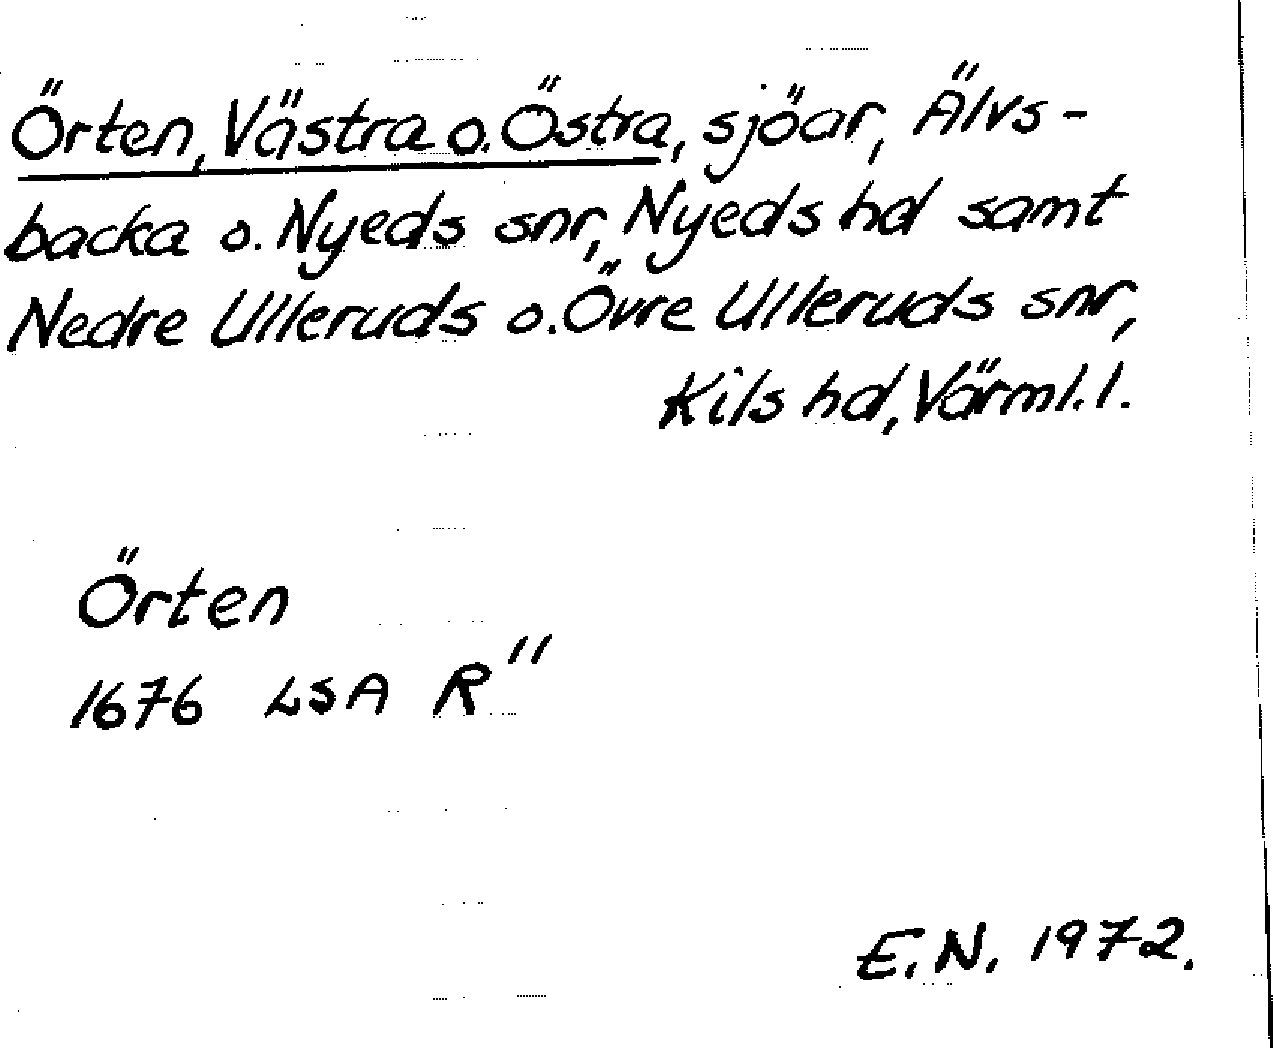 Örten, Västra o. Östra, sjöar, Älvs-
backa o. Nyeds snr, Nyeds hd samt
Nedre Ulleruds o. Övre Ulleruds snr,
Kils hd, Värml. l.
Örten
1676 LSA R"
E.N. 1972.